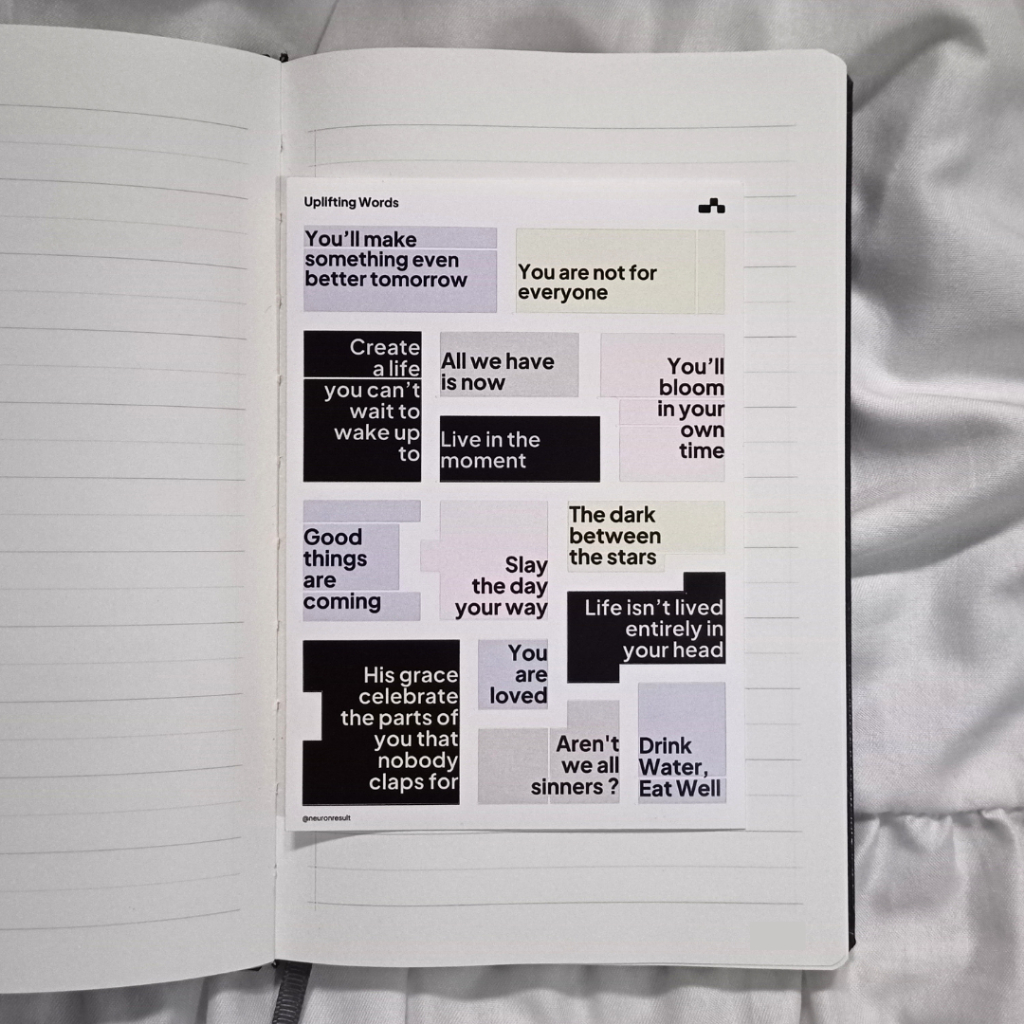 Uplifting Words
You'll make
something even
better tomorrow
You are not for
everyone
Create
a life
you can't
wait to
wake up
to
All we have
is now
You'll
bloom
in your
own
time
Live in the
moment
Good
things
are
coming
Slay
the day
your way
The dark
between
the stars
Life isn't lived
entirely in
your head
His grace
celebrate
the parts of
you that
nobody
claps for
You
are
loved
Aren't
we all
sinners ?
Drink
Water,
Eat Well
@neuronresult